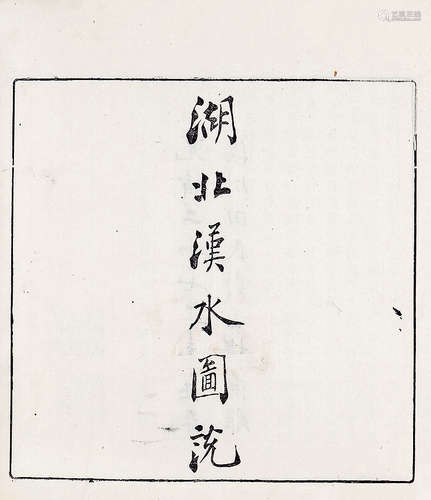 湖北漢水圖説